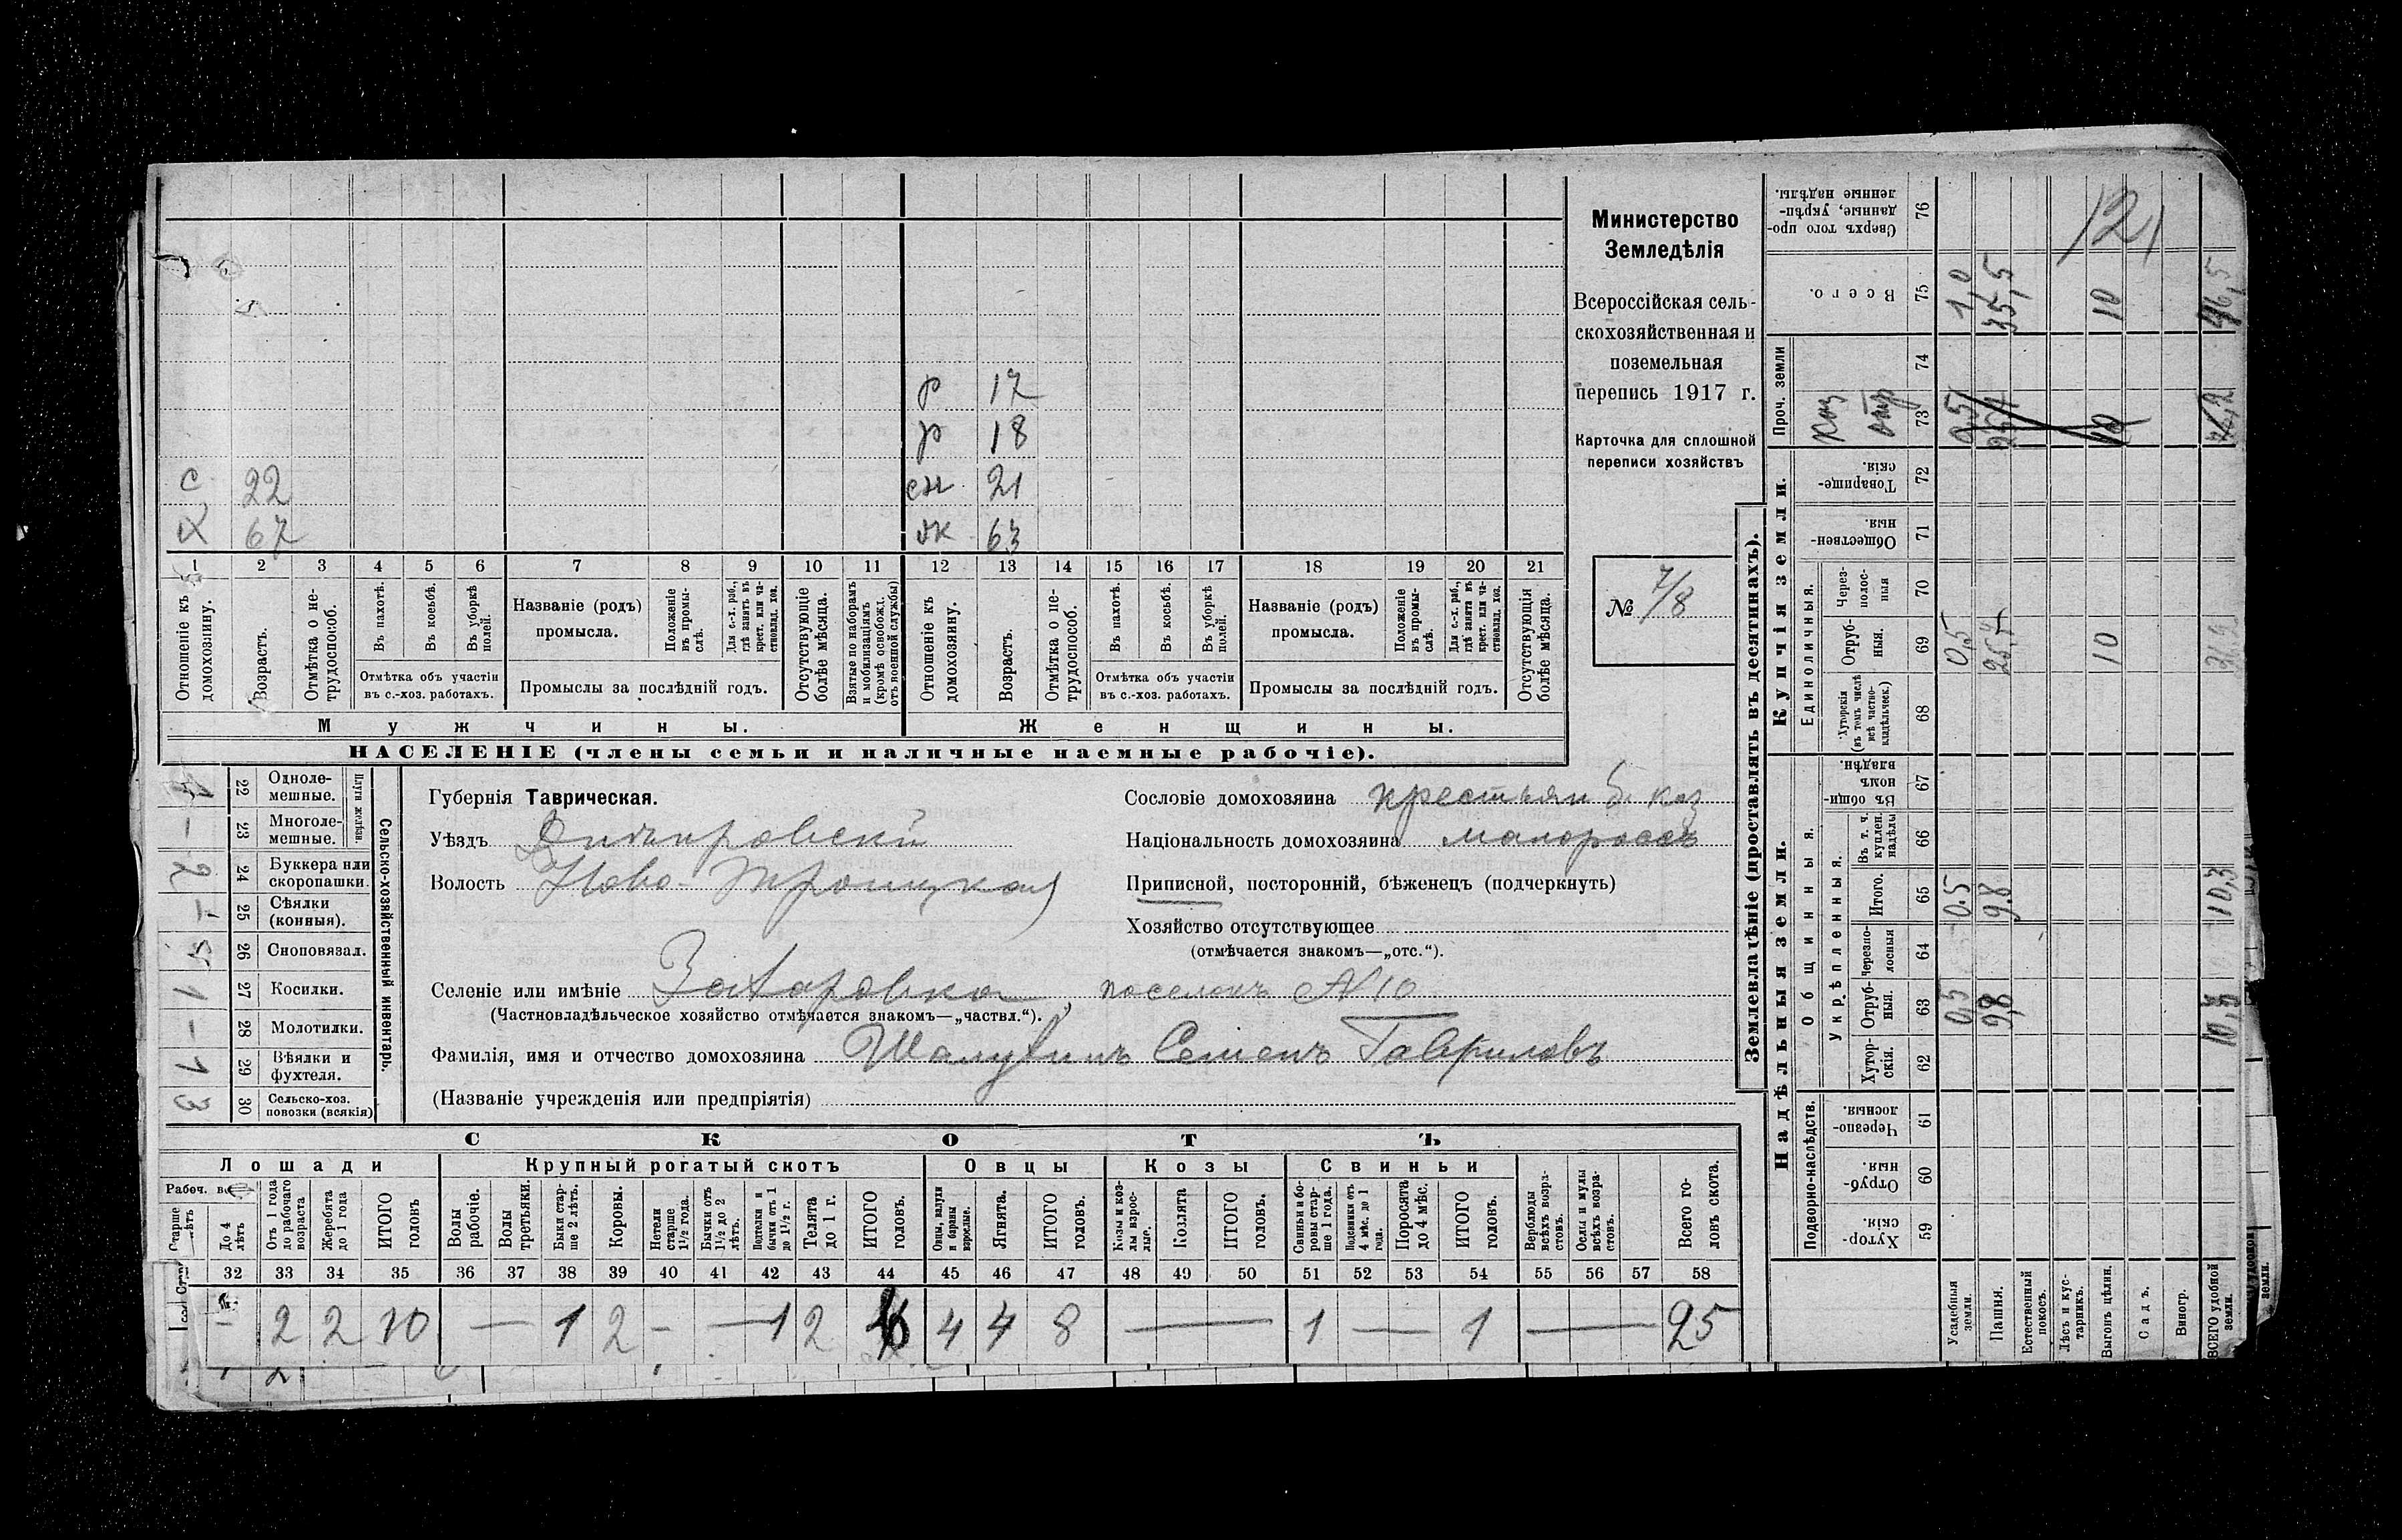 р 17
р 18
с 22 сн 21
х 67 ж 63
1 2 3 4 5 6 7 8 9 10 11 12 13 14 15 16 17 18 19 20 21
Отношеніе къ домохозяину.
Возрастъ.
Отмѣтка о нетрудоспособ.
Въ пахотѣ.
Въ косьбѣ.
Въ уборкѣ полей.
Отмѣтка объ участіи въ с.-хоз. работахъ.
Названіе (родъ) промысла.
Положеніе въ промыслѣ.
Для с.-х. раб., гдѣ занятъ въ крест. или частновлад. хоз.
Промыслы за послѣдній годъ.
Отсутствующіе болѣе мѣсяца.
Взятые по наборамъ и мобилизаціямъ (кромѣ освобожд. отъ военной службы)
Отношеніе къ домохозяину.
Возрастъ.
Отмѣтка о нетрудоспособ.
Въ пахотѣ.
Въ косьбѣ.
Въ уборкѣ полей.
Отмѣтка объ участіи въ с.-хоз. работахъ.
Названіе (родъ) промысла.
Положеніе въ промыслѣ.
Для с.-х. раб., гдѣ занята въ крест. или частновлад. хоз.
Промыслы за послѣдній годъ.
Отсутствующія болѣе мѣсяца.
Мужчины. Женщины.
НАСЕЛЕНІЕ (члены семьи и наличные наемные рабочіе).
Министерство
Земледѣлія
Всероссійская сель-
скохозяйственная и
поземельная
перепись 1917 г.
Карточка для сплошной
переписи хозяйствъ
№ 7/8
Сельско-хозяйственный инвентарь.
Плуги желѣзн.
22 Одноле-мешные.
– 23 Многоле-мешные.
2 24 Буккера или скоропашки.
25 Сѣялки (конныя).
26 Сноповязал.
1 27 Косилки.
– 28 Молотилки.
1 29 Вѣялки и фухтеля.
3 30 Сельско-хоз. повозки (всякія)
Губернія Таврическая.
Уѣздъ Днѣпровскій
Волость Ново-Троицкая
Селеніе или имѣніе Захаровка, поселокъ №10
(Частновладѣльческое хозяйство отмѣчается знакомъ—„частвл.“).
Фамилія, имя и отчество домохозяина Семенъ Гавриловъ
(Названіе учрежденія или предпріятія)
Сословіе домохозяина крестьян б. каз
Національность домохозяина малороссъ
Приписной, посторонній, бѣженецъ (подчеркнуть)
Хозяйство отсутствующее
(отмѣчается знакомъ—„отс.“).
СКОТЪ
Лошади Крупный рогатый скотъ Овцы Козы Свиньи
Рабоч. воз
Старше лѣтъ
До 4 лѣтъ
Отъ 1 года до рабочаго возраста
Жеребята до 1 года
ИТОГО головъ
Волы рабочіе.
Волы третьяки.
Быки старше 2 лѣтъ.
Коровы.
Нетели старше 1½ года.
Бычки отъ 1½ до 2 лѣтъ.
Подтелки и бычки отъ 1 до 1½ г.
Телята до 1 г.
ИТОГО головъ.
Овцы, валухи и бараны взрослые.
Ягнята.
ИТОГО головъ.
Козы и козлы взрослые.
Козлята
ИТОГО головъ.
Свиньи и боровы старше 1 года.
Подсвинки отъ 4 мѣс. до 1 года.
Поросята до 4 мѣс.
ИТОГО головъ.
Верблюды всѣхъ возрастовъ.
Ослы и мулы всѣхъ возрастовъ.
Всего головъ скота.
32 33 34 35 36 37 38 39 40 41 42 43 44 45 46 47 48 49 50 51 52 53 54 55 56 57 58
– 2 2 10 — 1 2 – — 1 2 6 4 4 8 — 1 — 1 — 25
Землевладѣніе (проставлять въ десятинахъ).
Надѣльныя земли. Купчія земли. Проч. земли
Подворно-наслѣдств. Общинныя. Единоличныя.
Укрѣпленныя.
Хуторскія 59
Отрубныя. 60
Черезполосныя 61
Хуторскія. 62
Отрубныя. 63 0,5 9,8 10,3
Черезполосныя 64
Итого. 65 0.5 9.8 10,3
Въ т. ч. куплен. надѣлы 66
Въ общинномъ владѣн. 67
Хуторскія (въ томъ числѣ всѣ частновладѣльческ.) 68
Отрубныя. 69 0,5 10
Черезполосныя 70
Общественныя. 71
Товарищескія. 72
73
74
Всего. 75 1,0 35,5 10 46,5
Сверхъ того проданные, укрѣпленные надѣлы. 76
121
Усадебныя земли.
Пашня.
Естественный покосъ.
Лѣсъ и кустарникъ.
Выгонъ цѣлин.
Садъ.
Виногр.
ВСЕГО удобной земли.